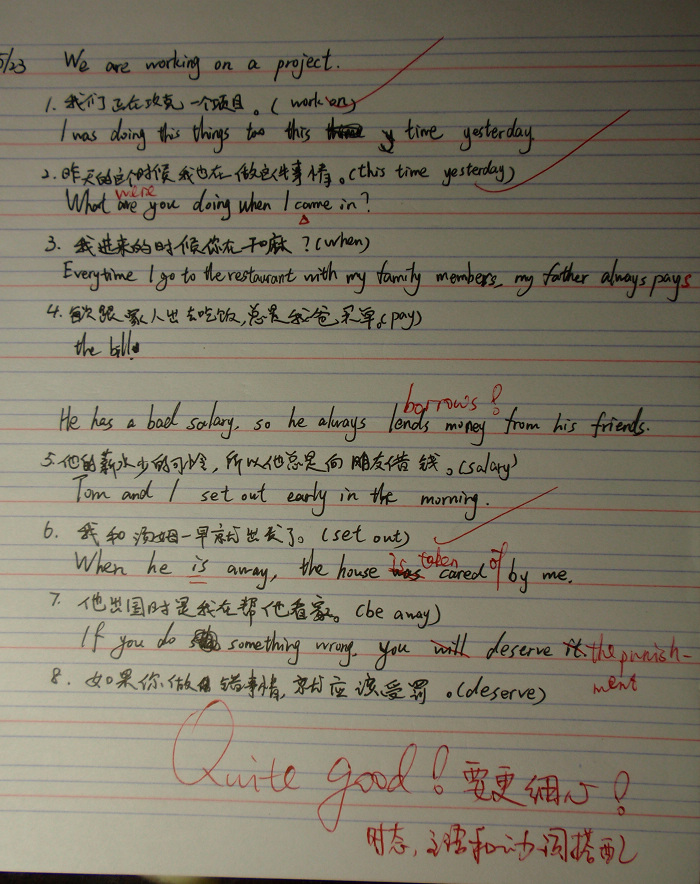 5/23 We are working on a project.
1. 我们正在攻克一个项目。(work on)
I was doing this things too this time yesterday
2. 昨天的这个时候我也在做这件事情。(this time yesterday)
were
What are you doing when I came in?
3. 我进来的时候你在干嘛?(when)
Everytime I go to the restaurant with my family members, my father always pays
4. 每次跟家人出去吃饭,总是我爸买单。(pay)
the bill.
borrows!
He has a bad salary, so he always lends money from his friends.
5. 他的薪水少的可怜,所以他总是向朋友借钱。(salary)
Tom and I set out early in the morning.
6. 我和汤姆一早就出发了。(set out)
is taken of
When he is away, the house was cared by me.
7. 他出国时是我在帮他看家。(be away)
If you do something wrong, you will deserve it. the punish-
ment
8. 如果你做错事情,就应该受罚。(deserve)
Quite good! 要更细心!
时态,主语和动词搭配